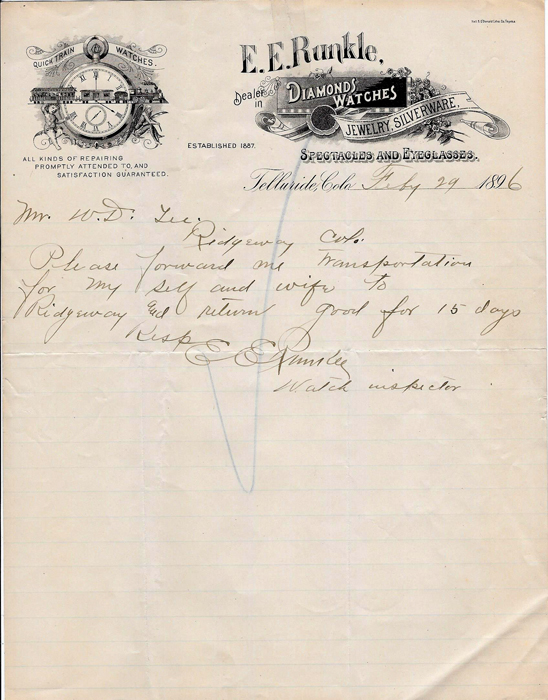 QUICK TRAIN WATCHES.
ALL KINDS OF REPAIRING
PROMPTLY ATTENDED TO, AND
SATISFACTION GUARANTEED.
E. E. Runkle,
Dealer in
DIAMONDS
WATCHES
JEWELRY, SILVERWARE,
SPECTACLES AND EYEGLASSES.
ESTABLISHED 1887.
Telluride, Colo Feby 29 1896
Mr. W. D. Lee.
Ridgeway Colo.
Please forward me transportation
for my self and wife to
Ridgeway and return good for 15 days
Resp
E E Runkle
Watch inspector